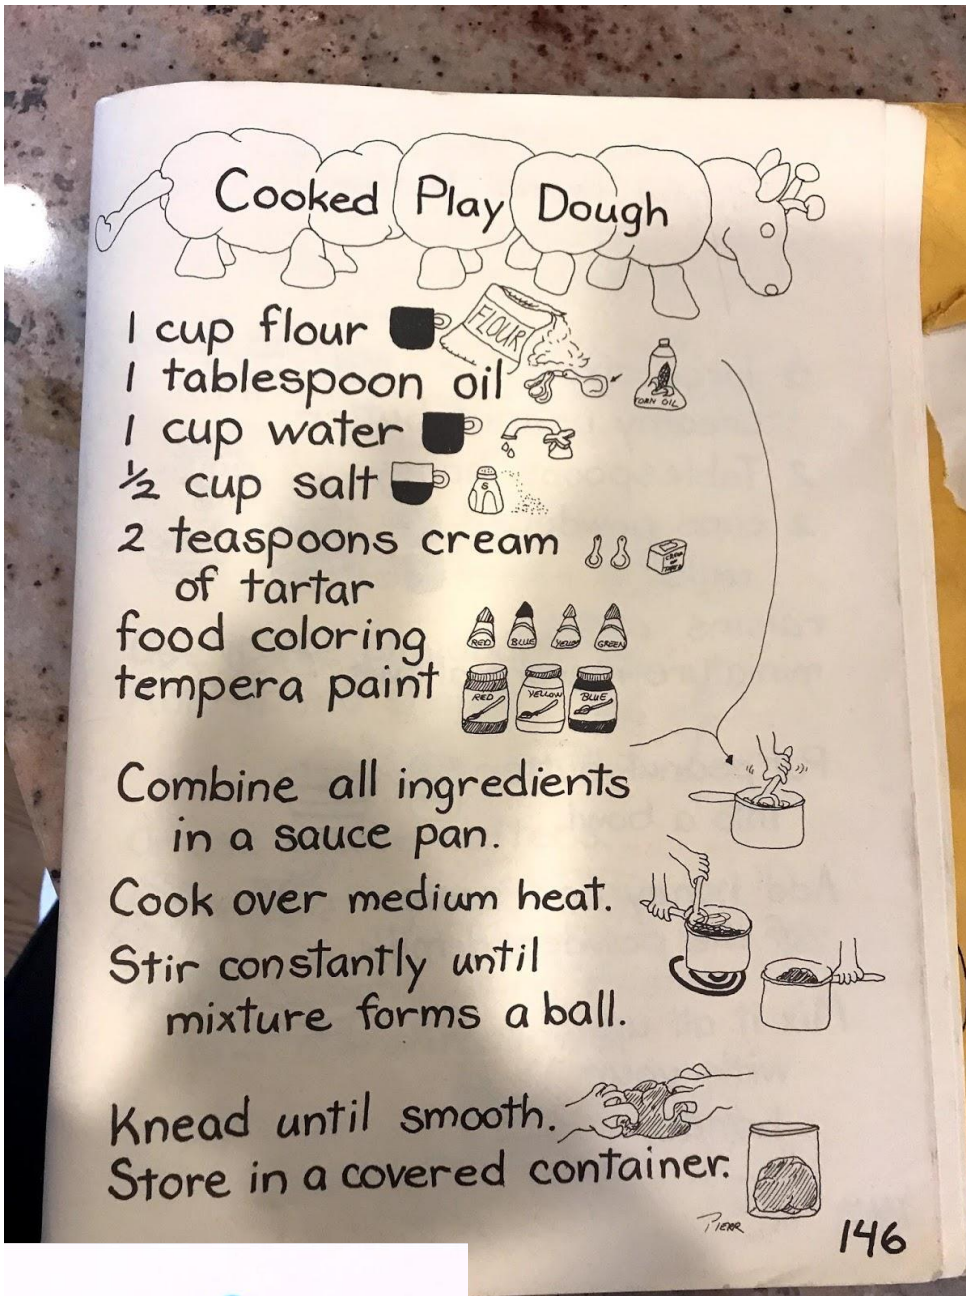 Cooked Play Dough
1 cup flour
FLOUR
1 tablespoon oil
CORN OIL
1 cup water
½ cup salt
S
2 teaspoons cream
of tartar
food coloring
RED BLUE YELLOW GREEN
tempera paint
RED YELLOW BLUE
Combine all ingredients
in a sauce pan.
Cook over medium heat.
Stir constantly until
mixture forms a ball.
Knead until smooth.
Store in a covered container.
146